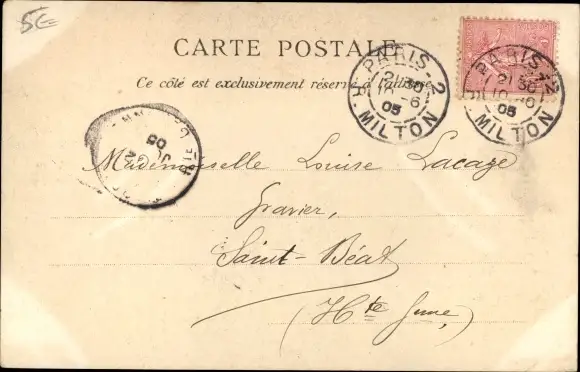 5€
CARTE POSTALE
Ce côté est exclusivement réservé à l'adresse
PARIS 2
21 30
10 - 6
05
R. MILTON
PARIS 2
21 30
10 - 6
05
R. MILTON
05
Mademoiselle Louise Lacaze
Gravier,
Saint-Béat
(Hte Garonne,)